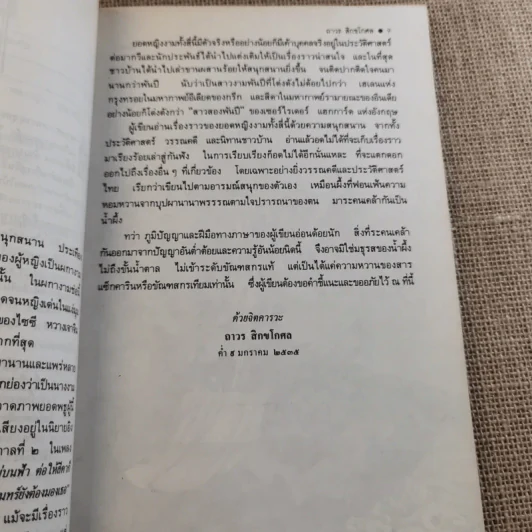 ถาวร สิกขโกศล ● ๙
ยอดหญิงงามทั้งสี่นี้มีตัวจริงหรืออย่างน้อยก็มีเค้าบุคคลจริงอยู่ในประวัติศาสตร์
ต่อมากวีและนักประพันธ์ได้นำไปแต่งเติมให้เป็นเรื่องราวน่าสนใจ และในที่สุด
ชาวบ้านได้นำไปเล่าขานผสานร้อยให้สนุกสนานยิ่งขึ้น จนติดปากติดใจคนมา
นานกว่าพันปี นับว่าเป็นสาวงามพันปีที่โด่งดังไม่ด้อยไปกว่า เฮเลนแห่ง
กรุงทรอยในมหากาพย์อีเลียดของกรีก และสีดาในมหากาพย์รามายณะของอินเดีย
อย่างน้อยก็โด่งดังกว่า "สาวสองพันปี" ของเซอร์ไรเดอร์ แฮกการ์ด แห่งอังกฤษ
ผู้เขียนอ่านเรื่องราวของยอดหญิงงามทั้งสี่นี้ด้วยความสนุกสนาน จากทั้ง
ประวัติศาสตร์ วรรณคดี และนิทานชาวบ้าน อ่านแล้วอดไม่ได้ที่จะเก็บเรื่องราว
มาเรียงร้อยเล่าสู่กันฟัง ในการเรียบเรียงก็อดไม่ได้อีกนั่นแหละ ที่จะแตกดอก
ออกไปถึงเรื่องอื่น ๆ ที่เกี่ยวข้อง โดยเฉพาะอย่างยิ่งวรรณคดีและประวัติศาสตร์
ไทย เรียกว่าเขียนไปตามอารมณ์สนุกของตัวเอง เหมือนผึ้งที่ฟอนเฟ้นความ
หอมหวานจากบุปผานานาพรรณตามใจปรารถนาของตน มาระคนคล้ากันเป็น
น้ำผึ้ง
ทว่า ภูมิปัญญาและฝีมือทางภาษาของผู้เขียนอ่อนด้อยนัก สิ่งที่ระคนคล้า
กันออกมาจากปัญญาอันต่ำต้อยและความรู้อันน้อยนิดนี้ จึงอาจมิใช่มธุรสของน้ำผึ้ง
ไม่ถึงขั้นน้ำตาล ไม่เข้าระดับขัณฑสกรแท้ แต่เป็นได้แค่ความหวานของสาร
แซ็กคารินหรือขัณฑสกรเทียมเท่านั้น ซึ่งผู้เขียนต้องขอคำชี้แนะและขออภัยไว้ ณ ที่นี้
ด้วยจิตคารวะ
ถาวร สิกขโกศล
ค่ำ ๙ มกราคม ๒๕๓๕
นุกสนาน ประเทือ
องผู้หญิงเป็นผกางาม
นั้น ในผกางามช่อนี้
ดจนหญิงเด่นในแง่มุม
ของไซซี หวางเจาจวิน
ากที่สุด
านานและแพร่หลาย
กย่องว่าเป็นนางงาม
าดภาพยอดพธูผู้นี้
เสียงอยู่ในนิยายอิง
กาลที่ ๒ ในเพลง
บนฟ้า ต่อให้ธิดา
นทร์ยังต้องมองเธอ"
แม้จะมีเรื่องราว